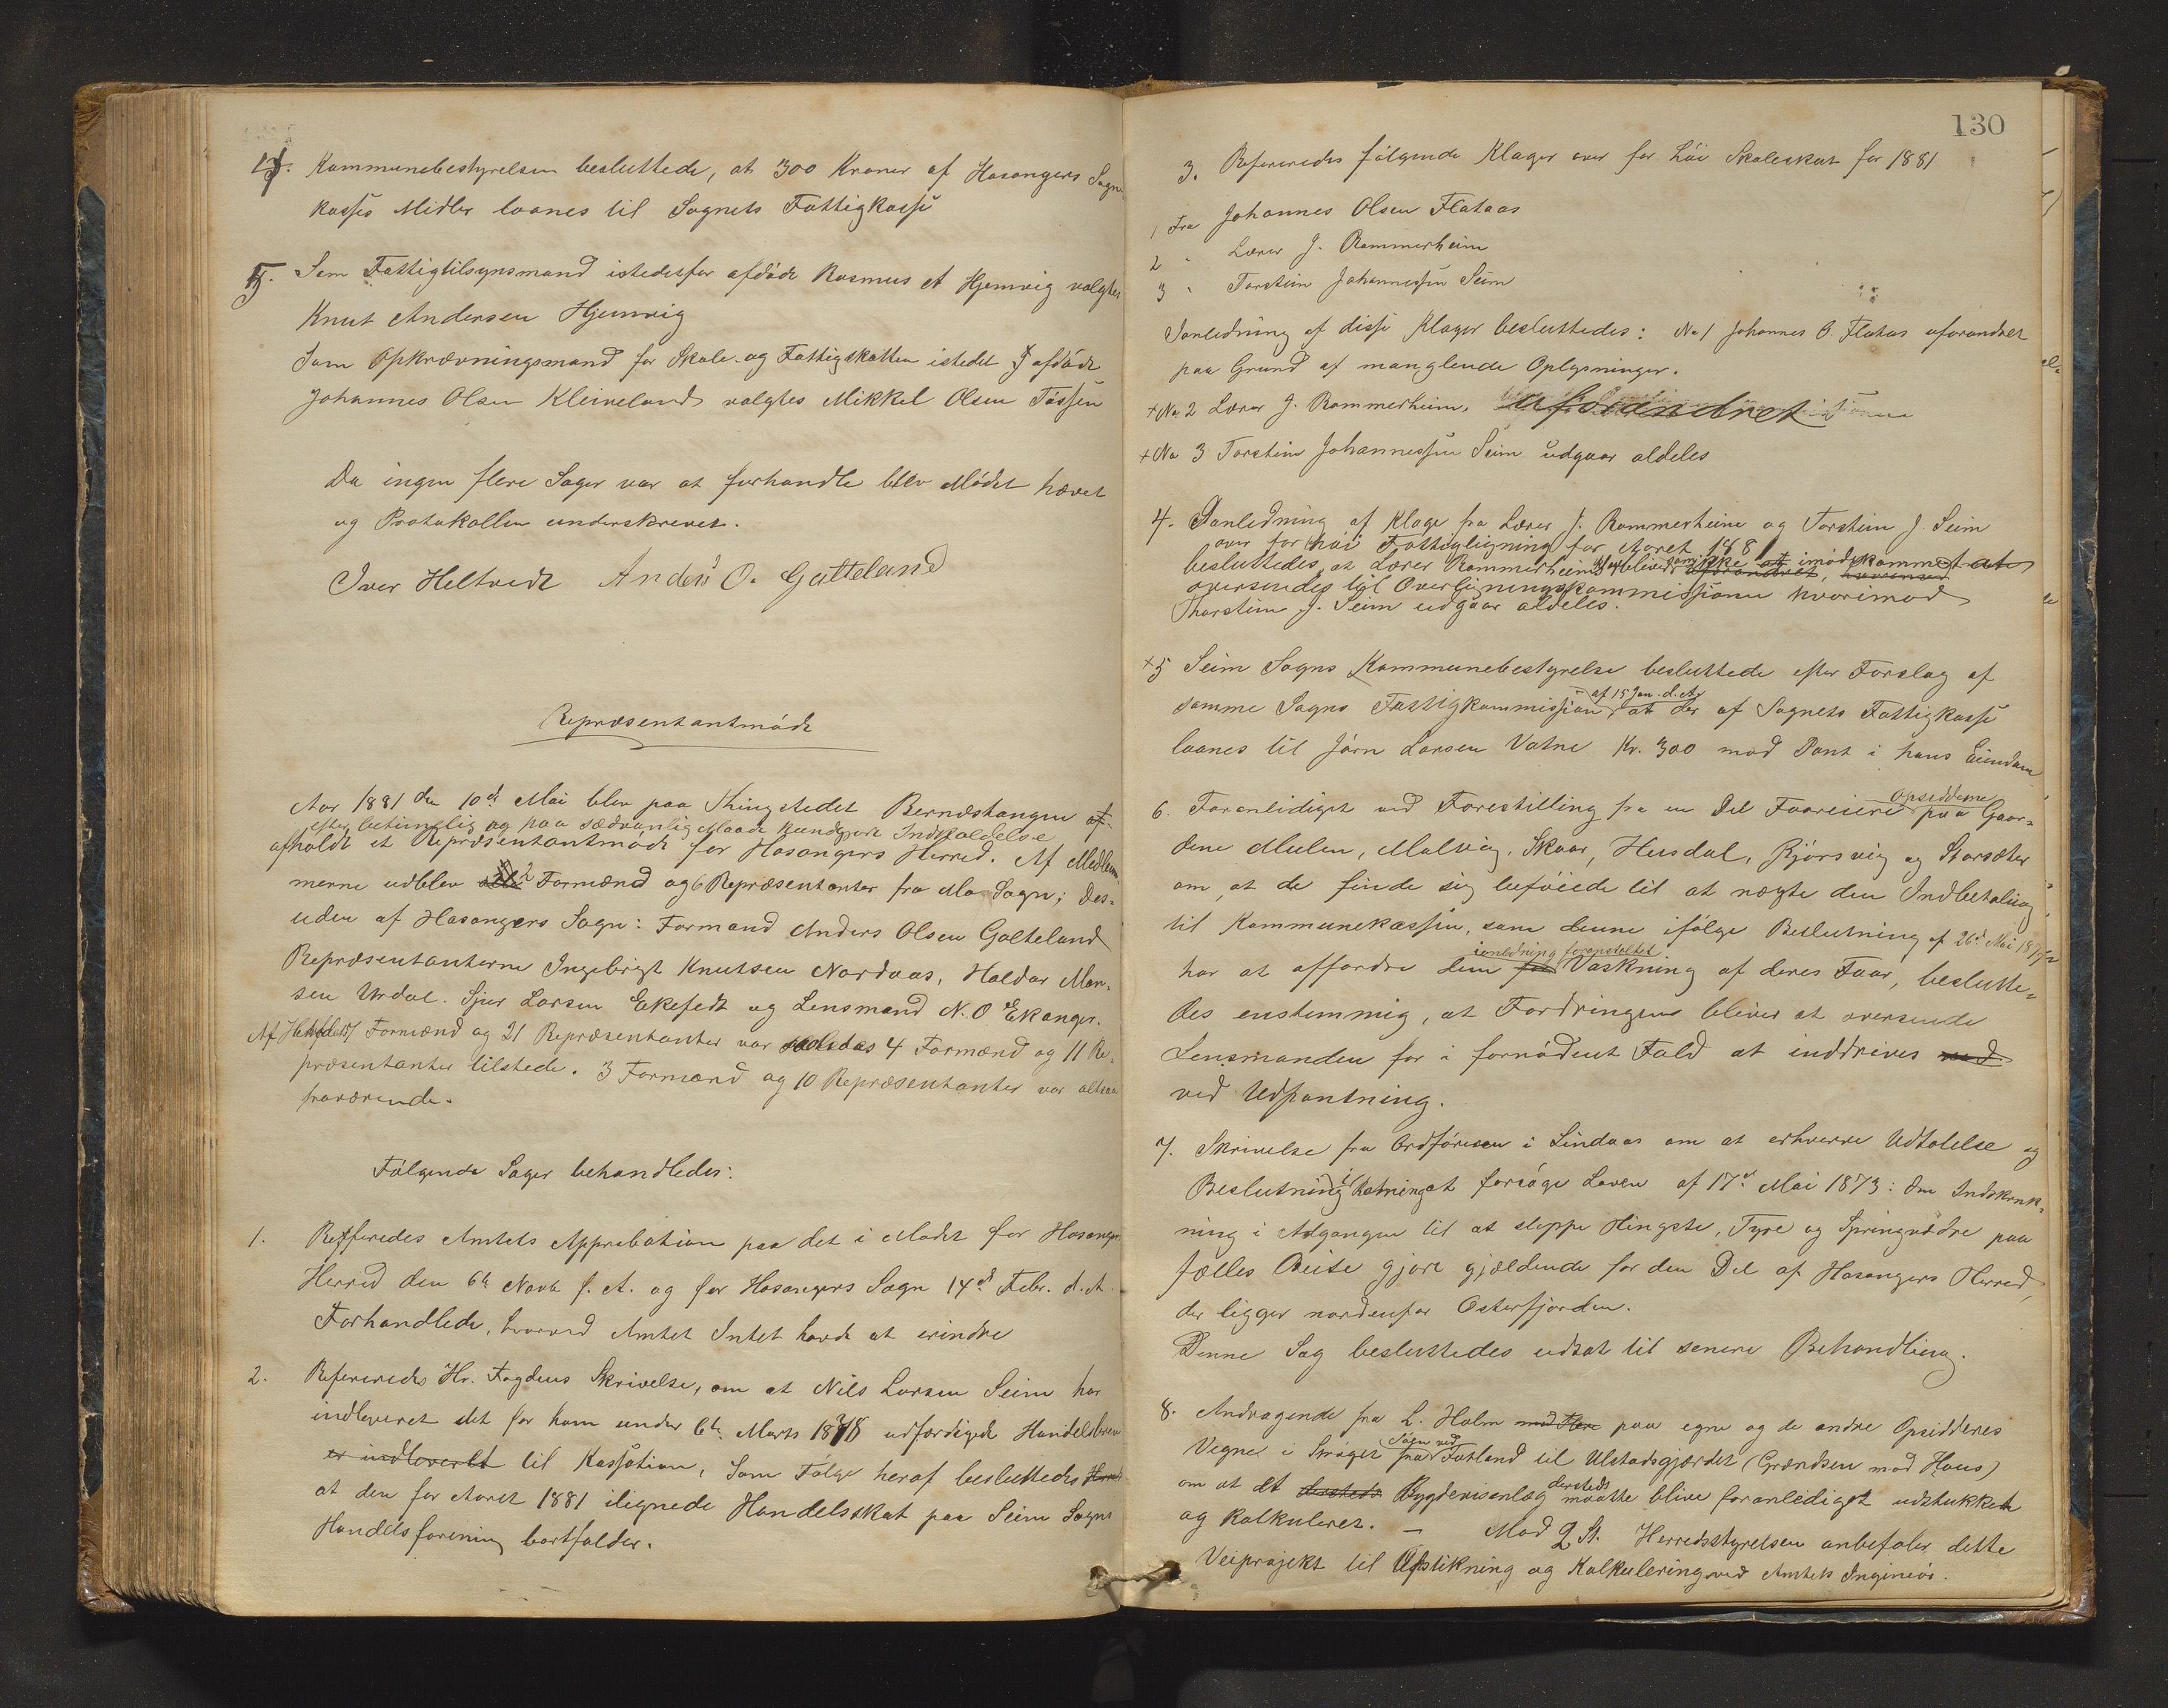 Kommunebestyrelsen besluttede, at 300 Kroner af Hosangers Sogne
kasses Midler laanes til Sognets Fattigkasse
Som Fattigtilsynsmand istedetfor afdøde Rasmus A Hjemvig valgtes
Knut Andersen Hjemvig
Som Opkrævningsmand for Skole- og Fattigskatten istedet f afdøde
Johannes Olsen Kleiveland valgtes Mikkel Olsen Tøssen
Da ingen flere Sager var at forhandle blev Mødet hævet
og Protokollen underskrevet.
Iver Heltvedt Anders O. Galteland
Repræsentantmøde
Aar 1881 den 10de Mai blev paa Thingstedet Bernæstangen af-
efter betimelig og paa sædvanlig Maade kundgjorte Indkaldelse
afholdt et Repræsentantmøde for Hosangers Herred. Af Medlem
merne udblev 2 Formænd og 6 Repræsentanter fra Mo Sogn; Des-
uden af Hosangers Sogn: Formand Anders Olsen Galteland
Repræsentanterne Ingebrigt Knutsen Nordaas, Haldor Mon-
sen Urdal. Sjur Larsen Eknfedt og Lensmand N. O Ekanger.
Af Herredets 7 Formænd og 21 Repræsentanter var saaledes 4 Formænd og 11 Re-
præsentanter tilstede. 3 Formænd og 10 Repræsentanter var altsaa
fraværende.
Følgende Sager behandledes:
1. Refferedes Amtets Approbation paa det i Mødet for Hosangers
Herred den 6te Novb f. A. og for Hosangers Sogn 14de Febr. d. A.
Forhandlede, hvorved Amtet Intet havde at erindre
2. Refereredes Hr. Fogdens Skrivelse, om at Nils Larsen Seim har
indleveret det for ham under 6te Marts 1878 udfærdigede Handelsbrev
er indleverlt til Kassation, Som Følge heraf besluttedes
at den for Aaret 1881 ilignede Handelsskat paa Seim Sogns
Handelsforening bortfalder.
130
3. Refereredes følgende Klager over for høi Skoleskat for 1881
1 Fra Johannes Olsen Flataas
2 " Lærer J. Rommerheim
3 " Torstein Johannessen Seim
Ianledning af disse Klager besluttedes: No 1 Johannes O. Flataas uforandret
paa Grund af manglende Oplysninger.
+ No 2 Lærer J. Rommerheim, uforandret
+ No 3 Torstein Johannessen Seim udgaar aldeles
4. Ianledning af Klage fra Lærer J. Rommerheim og Torstein J. Seim
over for høi Fattigligning for Aaret 1881
besluttedes, at Lærer Rommerheims Klage bliver ikke at imødekomme at
oversendes til Overligningskommissionen hvorimod
Thorstein J. Seim udgaar aldeles.
+ 5 Seim Sogns Kommunebestyrelse besluttede efter Forslag af
af 15 Jan. d. A.
samme Sogns Fattigkommission, at der af Sognets Fattigkasse
laanes til Jørn Larsen Vatne Kr. 300 mod Pant i hans Eiendom
Opsidderne
6. Foranlediget ved Forestilling fra en Del Faareiere paa Gaar-
dene Mulen, Molvig, Skaar, Husdal, Bjørsvig og Storsæter
om, at de finde sig beføiede til at nægte den Indbetaling
til Kommunekassen, som denne ifølge Beslutning af 26de Mai 187
ianledning foranstaltet
har at affordre dem for Vaskning af deres Faar, beslutte-
des enstemmig, at Fordringen bliver at oversende
Lensmanden for i fornødent Fald at inddrives ved
ved Udpantning.
7. Skrivelse fra Ordføreren i Lindaas om at erhverve Udtalelse og
Beslutning i Retning at forsøge Loven af 17de Mai 1873: Om Indskrænk-
ning i Adgangen til at sleppe Hingste, Tyre og Springvædre paa
fælles Beite gjort gjældende for den Del af Hosangers Herred,
der ligger nordenfor Osterfjorden.
Denne Sag besluttedes udsat til senere Behandling.
8. Andragende fra L. Holm med Flere paa egne og de andre Opsidderes
Vegne i Strøget fra Fotland til Ulstadsgjærdet (Grændsen mod Haus)
om at et dersteds Bygdeveisanlæg maatte blive foranlediget udstukket
og kalkuleret. — Mod 2 St. Herredsstyrelsen anbefaler dette
Veiprojekt til Opstikning og Kalkulering ved Amtets Ingeniør.